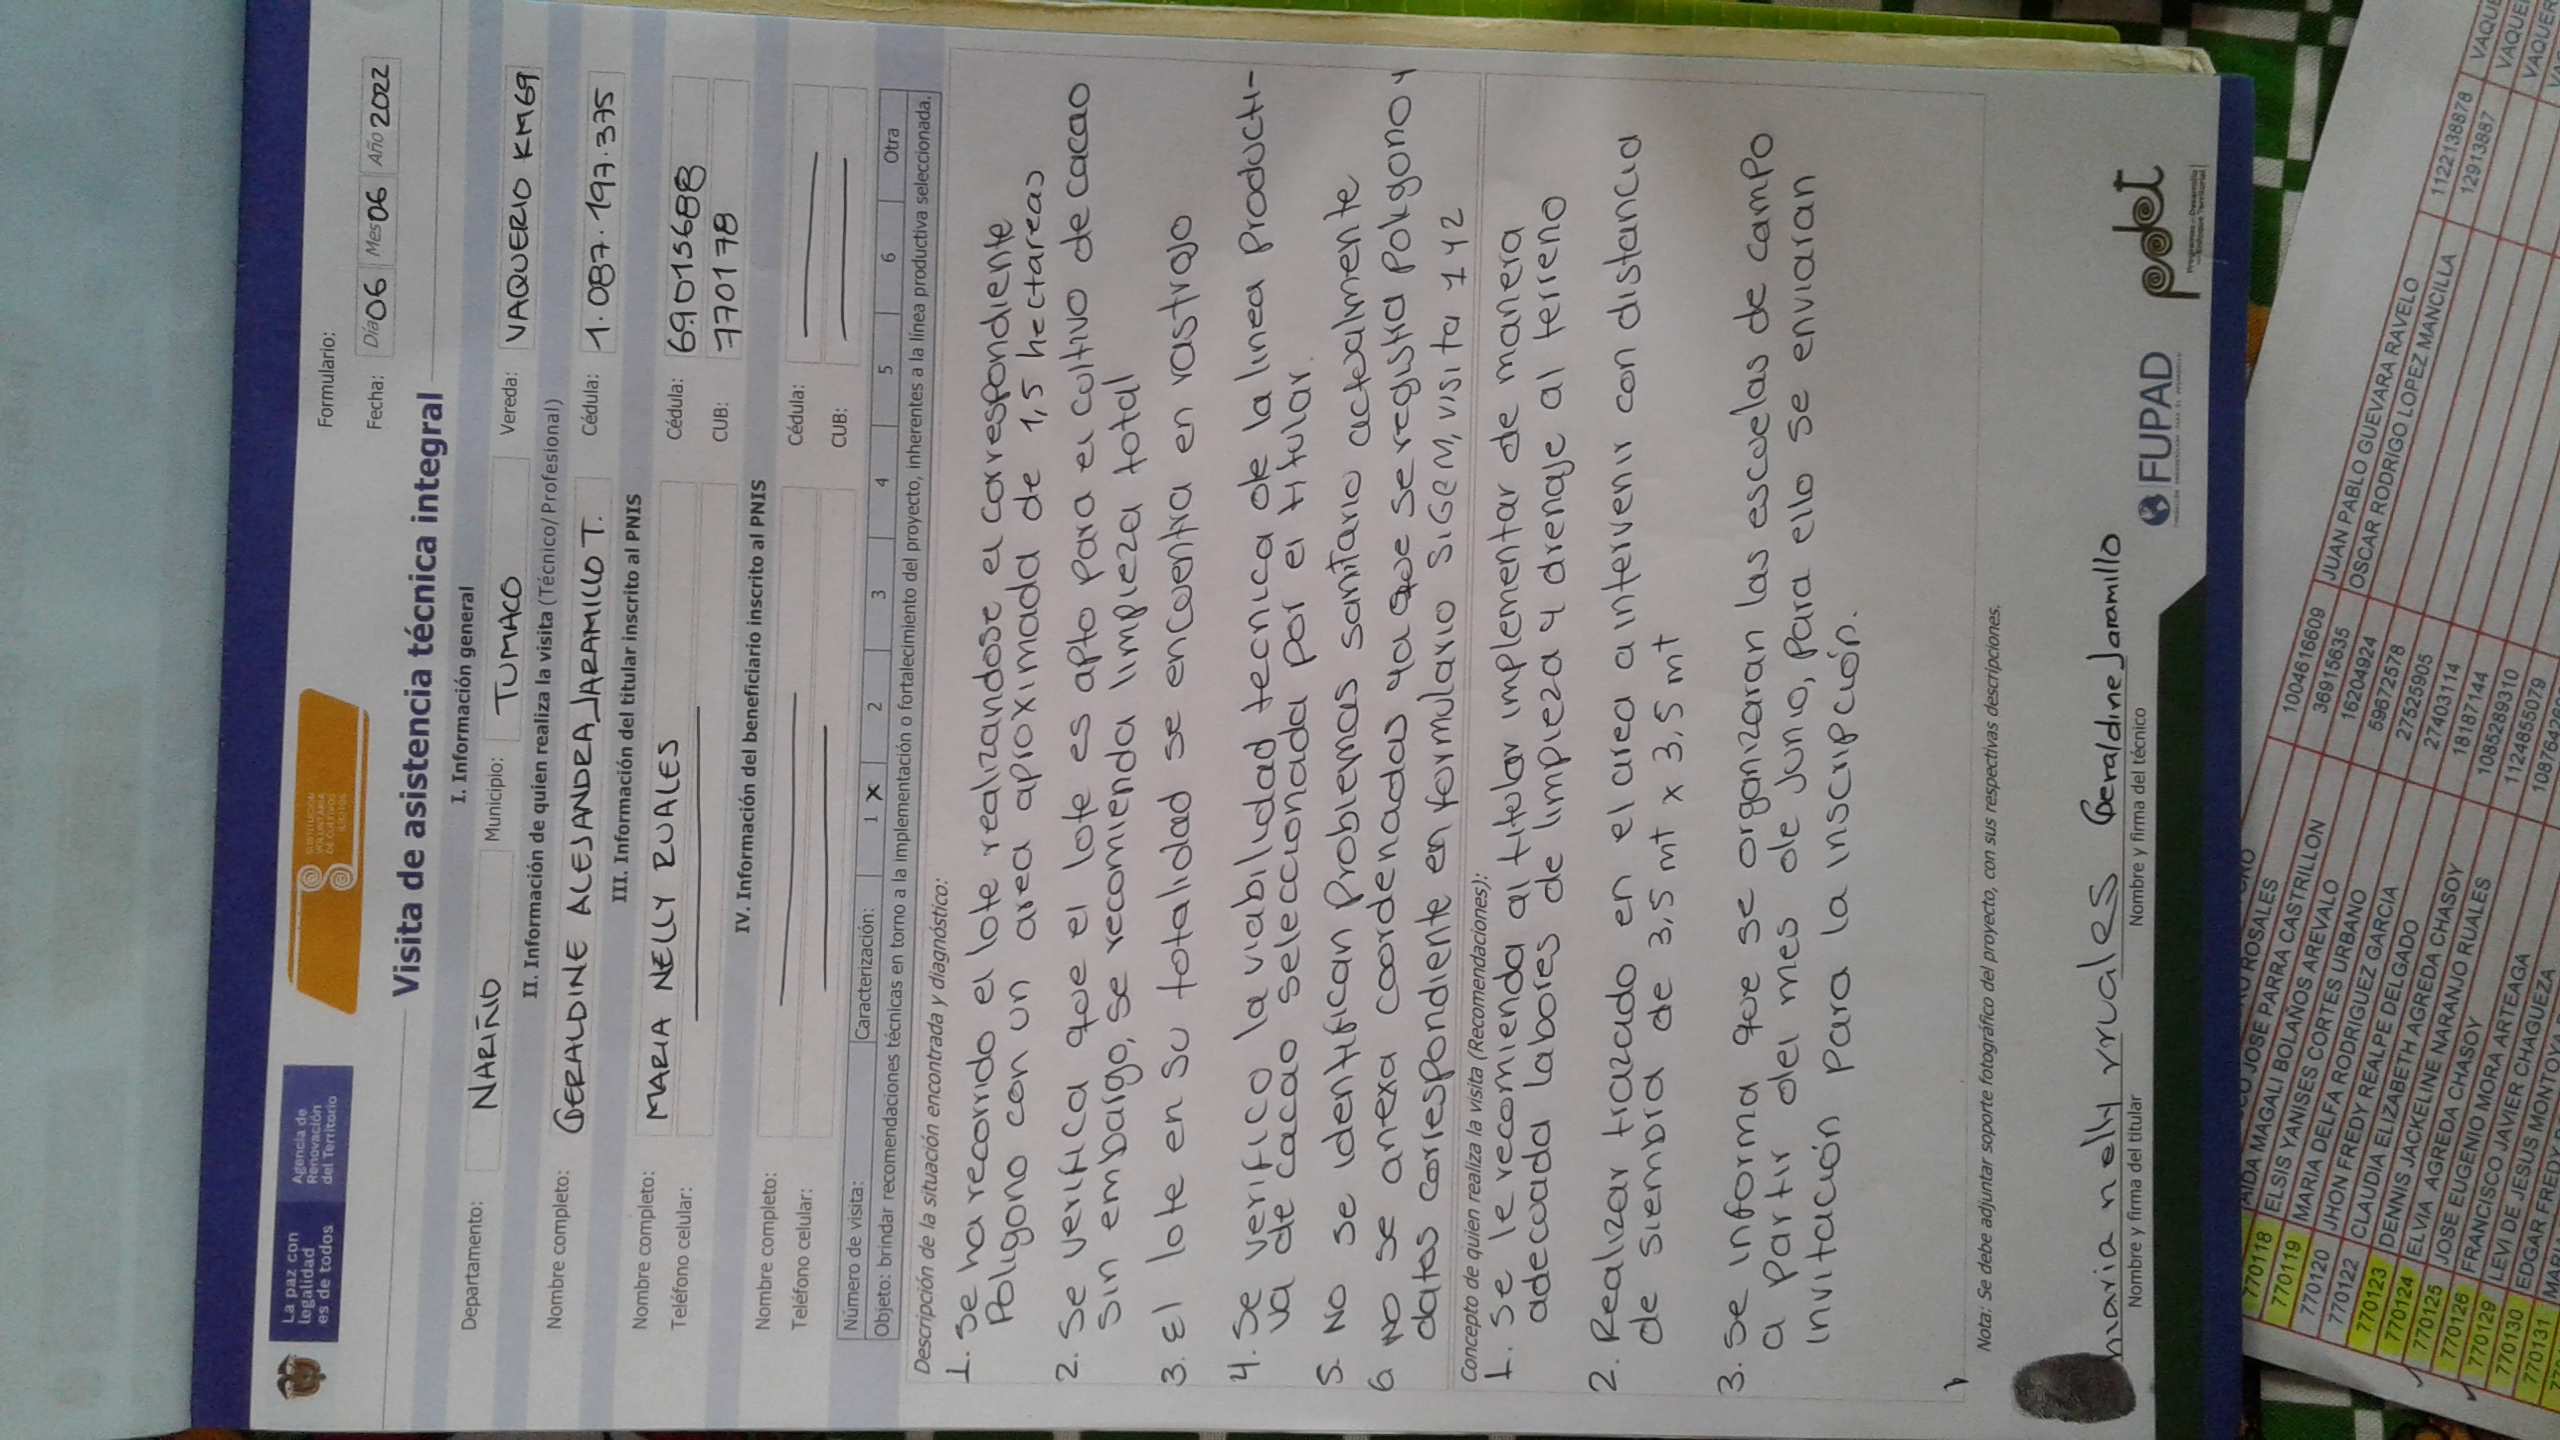 La paz con
legalidad
es de todos
Agencia de
Renovación
del Territorio
SUSTITUCIÓN
VOLUNTARIA
DE CULTIVOS
ILÍCITOS
Formulario:
Fecha: Día 06 Mes 06 Año 2022
Visita de asistencia técnica integral
I. Información general
Departamento: NARIÑO Municipio: TUMACO Vereda: VAQUERIO KM69
II. Información de quien realiza la visita (Técnico/Profesional)
Nombre completo: GERALDINE ALEJANDRA JARAMILLO T. Cédula: 1.087.197.375
III. Información del titular inscrito al PNIS
Nombre completo: MARIA NELLY RUALES Cédula: 69015688
Teléfono celular: CUB: 770178
IV. Información del beneficiario inscrito al PNIS
Nombre completo: Cédula:
Teléfono celular: CUB:
Número de visita: Caracterización: 1 X 2 3 4 5 6 Otra
Objeto: brindar recomendaciones técnicas en torno a la implementación o fortalecimiento del proyecto, inherentes a la línea productiva seleccionada.
Descripción de la situación encontrada y diagnóstico:
1. Se ha recorrido el lote realizandose el correspondiente
Poligono con un area aproximada de 1,5 hectareas
2. Se verifica que el lote es apto para el cultivo de cacao
sin embargo, se recomienda limpieza total
3. El lote en su totalidad se encuentra en rastrojo
4. Se verifico la viabilidad tecnica de la linea producti-
va de cacao seleccionada por el titular.
5. No se identifican problemas sanitario actualmente
6. No se anexa coordenadas ya que se registra poligono y
datos correspondiente en formulario SIGEM, visita 1 y 2
Concepto de quien realiza la visita (Recomendaciones):
1. Se le recomienda al titular implementar de manera
adecuada labores de limpieza y drenaje al terreno
2. Realizar trazado en el area a intervenir con distancia
de siembra de 3,5 mt x 3,5 mt
3. Se informa que se organizaran las escuelas de campo
a partir del mes de Junio, Para ello se enviaran
invitación para la inscripción.
Nota: Se debe adjuntar soporte fotográfico del proyecto, con sus respectivas descripciones.
maria nelly rruales Geraldine Jaramillo
Nombre y firma del titular Nombre y firma del técnico
FUPAD
pdet
Programas de Desarrollo
con Enfoque Territorial
770118 AIDA MAGALI BOLAÑOS AREVALO
770119 ELSIS YANISES CORTES URBANO
770120 MARIA DELFA RODRIGUEZ GARCIA
770122 JHON FREDY REALPE DELGADO
770123 CLAUDIA ELIZABETH AGREDA CHASOY
770124 DENNIS JACKELINE NARANJO RUALES
770125 ELVIA AGREDA CHASOY
770126 JOSE EUGENIO MORA ARTEAGA
770129 FRANCISCO JAVIER CHAGUEZA
770130 LEVI DE JESUS MONTOYA
770131 EDGAR FREDY
JOSE PARRA CASTRILLON
ROSALES
1004616609 JUAN PABLO GUEVARA RAVELO 1122138878
36915635 OSCAR RODRIGO LOPEZ MANCILLA 12913887
16204924
59672578
27525905
27403114
18187144
1085289310
1124855079